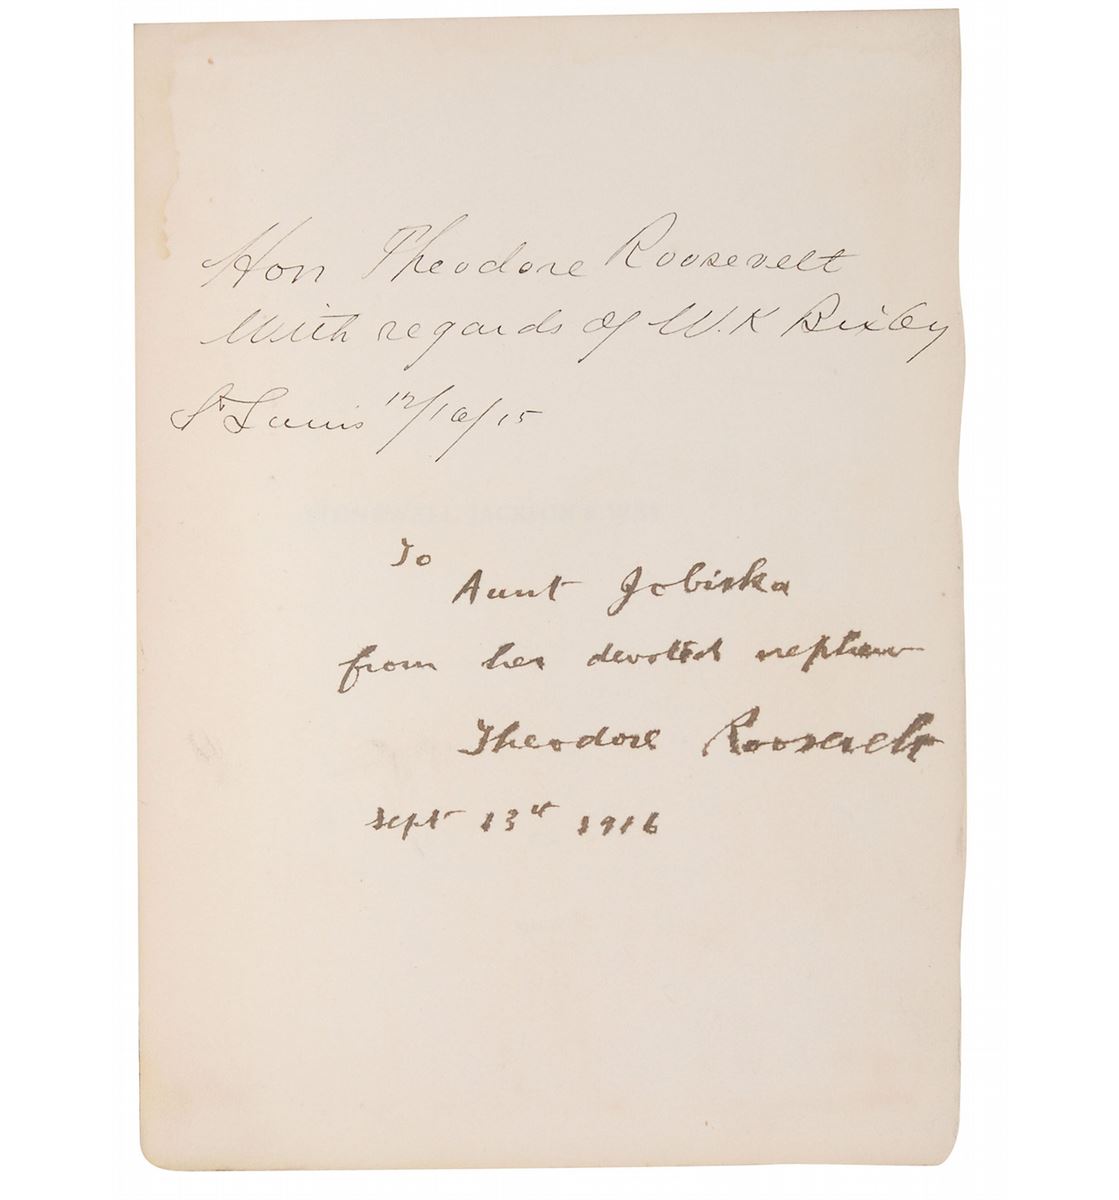 Hon Theodore Roosevelt
With regards of W.K Bixby
St Louis 12/16/15
STONEWALL JACKSON'S WAY
To
Aunt Jobiska
from her devoted nephew
Theodore Roosevelt
Sept 13th 1916